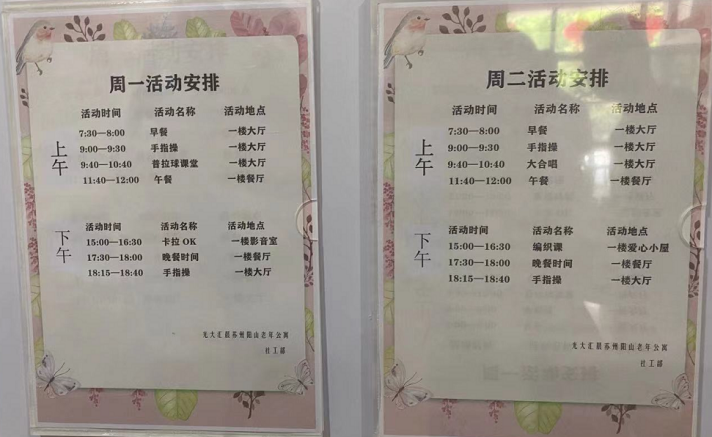 周一活动安排
上午
活动时间 活动名称 活动地点
7:30—8:00 早餐 一楼大厅
9:00—9:30 手指操 一楼大厅
9:40—10:40 普拉球课堂 一楼大厅
11:40—12:00 午餐 一楼餐厅
下午
活动时间 活动名称 活动地点
15:00—16:30 卡拉 OK 一楼影音室
17:30—18:00 晚餐时间 一楼餐厅
18:15—18:40 手指操 一楼大厅
光大汇晨苏州阳山老年公寓
社工部
周二活动安排
上午
活动时间 活动名称 活动地点
7:30—8:00 早餐 一楼大厅
9:00—9:30 手指操 一楼大厅
9:40—10:40 大合唱 一楼大厅
11:40—12:00 午餐 一楼餐厅
下午
活动时间 活动名称 活动地点
15:00—16:30 编织课 一楼爱心小屋
17:30—18:00 晚餐时间 一楼餐厅
18:15—18:40 手指操 一楼大厅
光大汇晨苏州阳山老年公寓
社工部